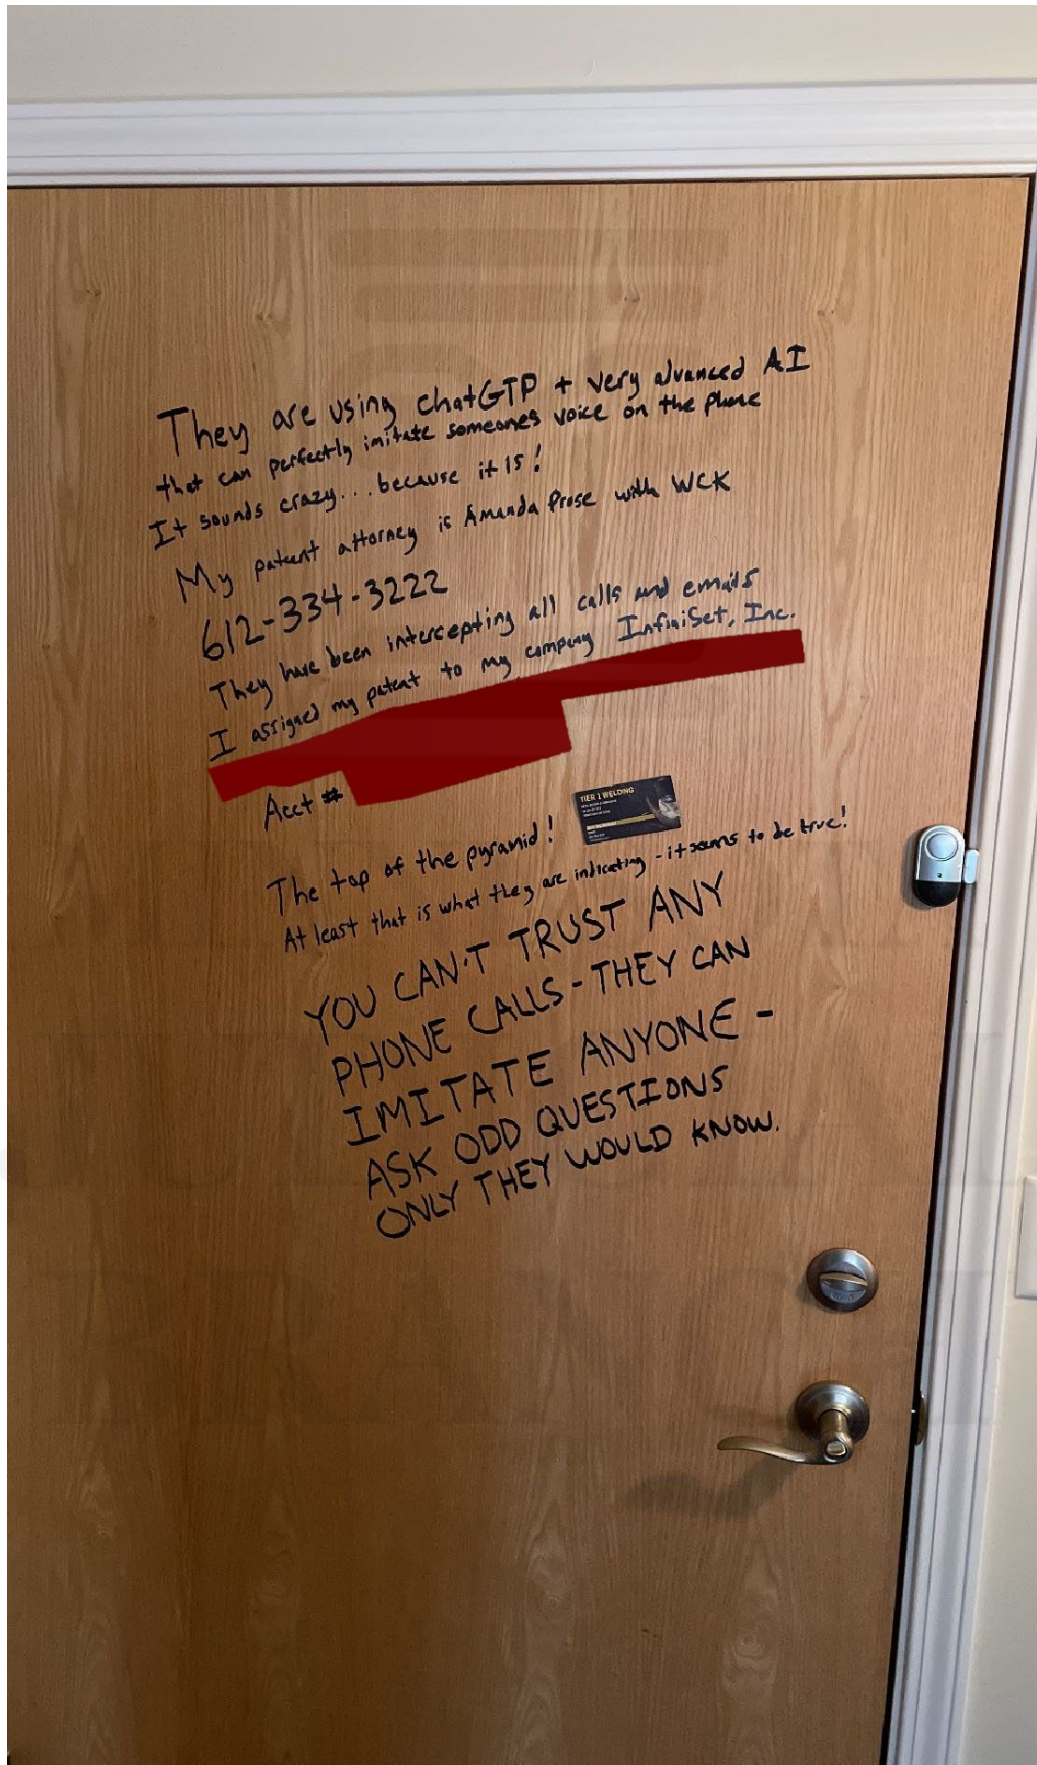 They are using chatGTP + very advanced AI
that can perfectly imitate someones voice on the phone
It sounds crazy... because it is!
My patent attorney is Amanda Prose with WCK
612-334-3222
They have been intercepting all calls and emails
I assigned my patent to my company InfiniSet, Inc.
Acct #
The top of the pyramid!
TIER 1 WELDING
At least that is what they are indicating - it seems to be true!
YOU CAN'T TRUST ANY
PHONE CALLS - THEY CAN
IMITATE ANYONE -
ASK ODD QUESTIONS
ONLY THEY WOULD KNOW.